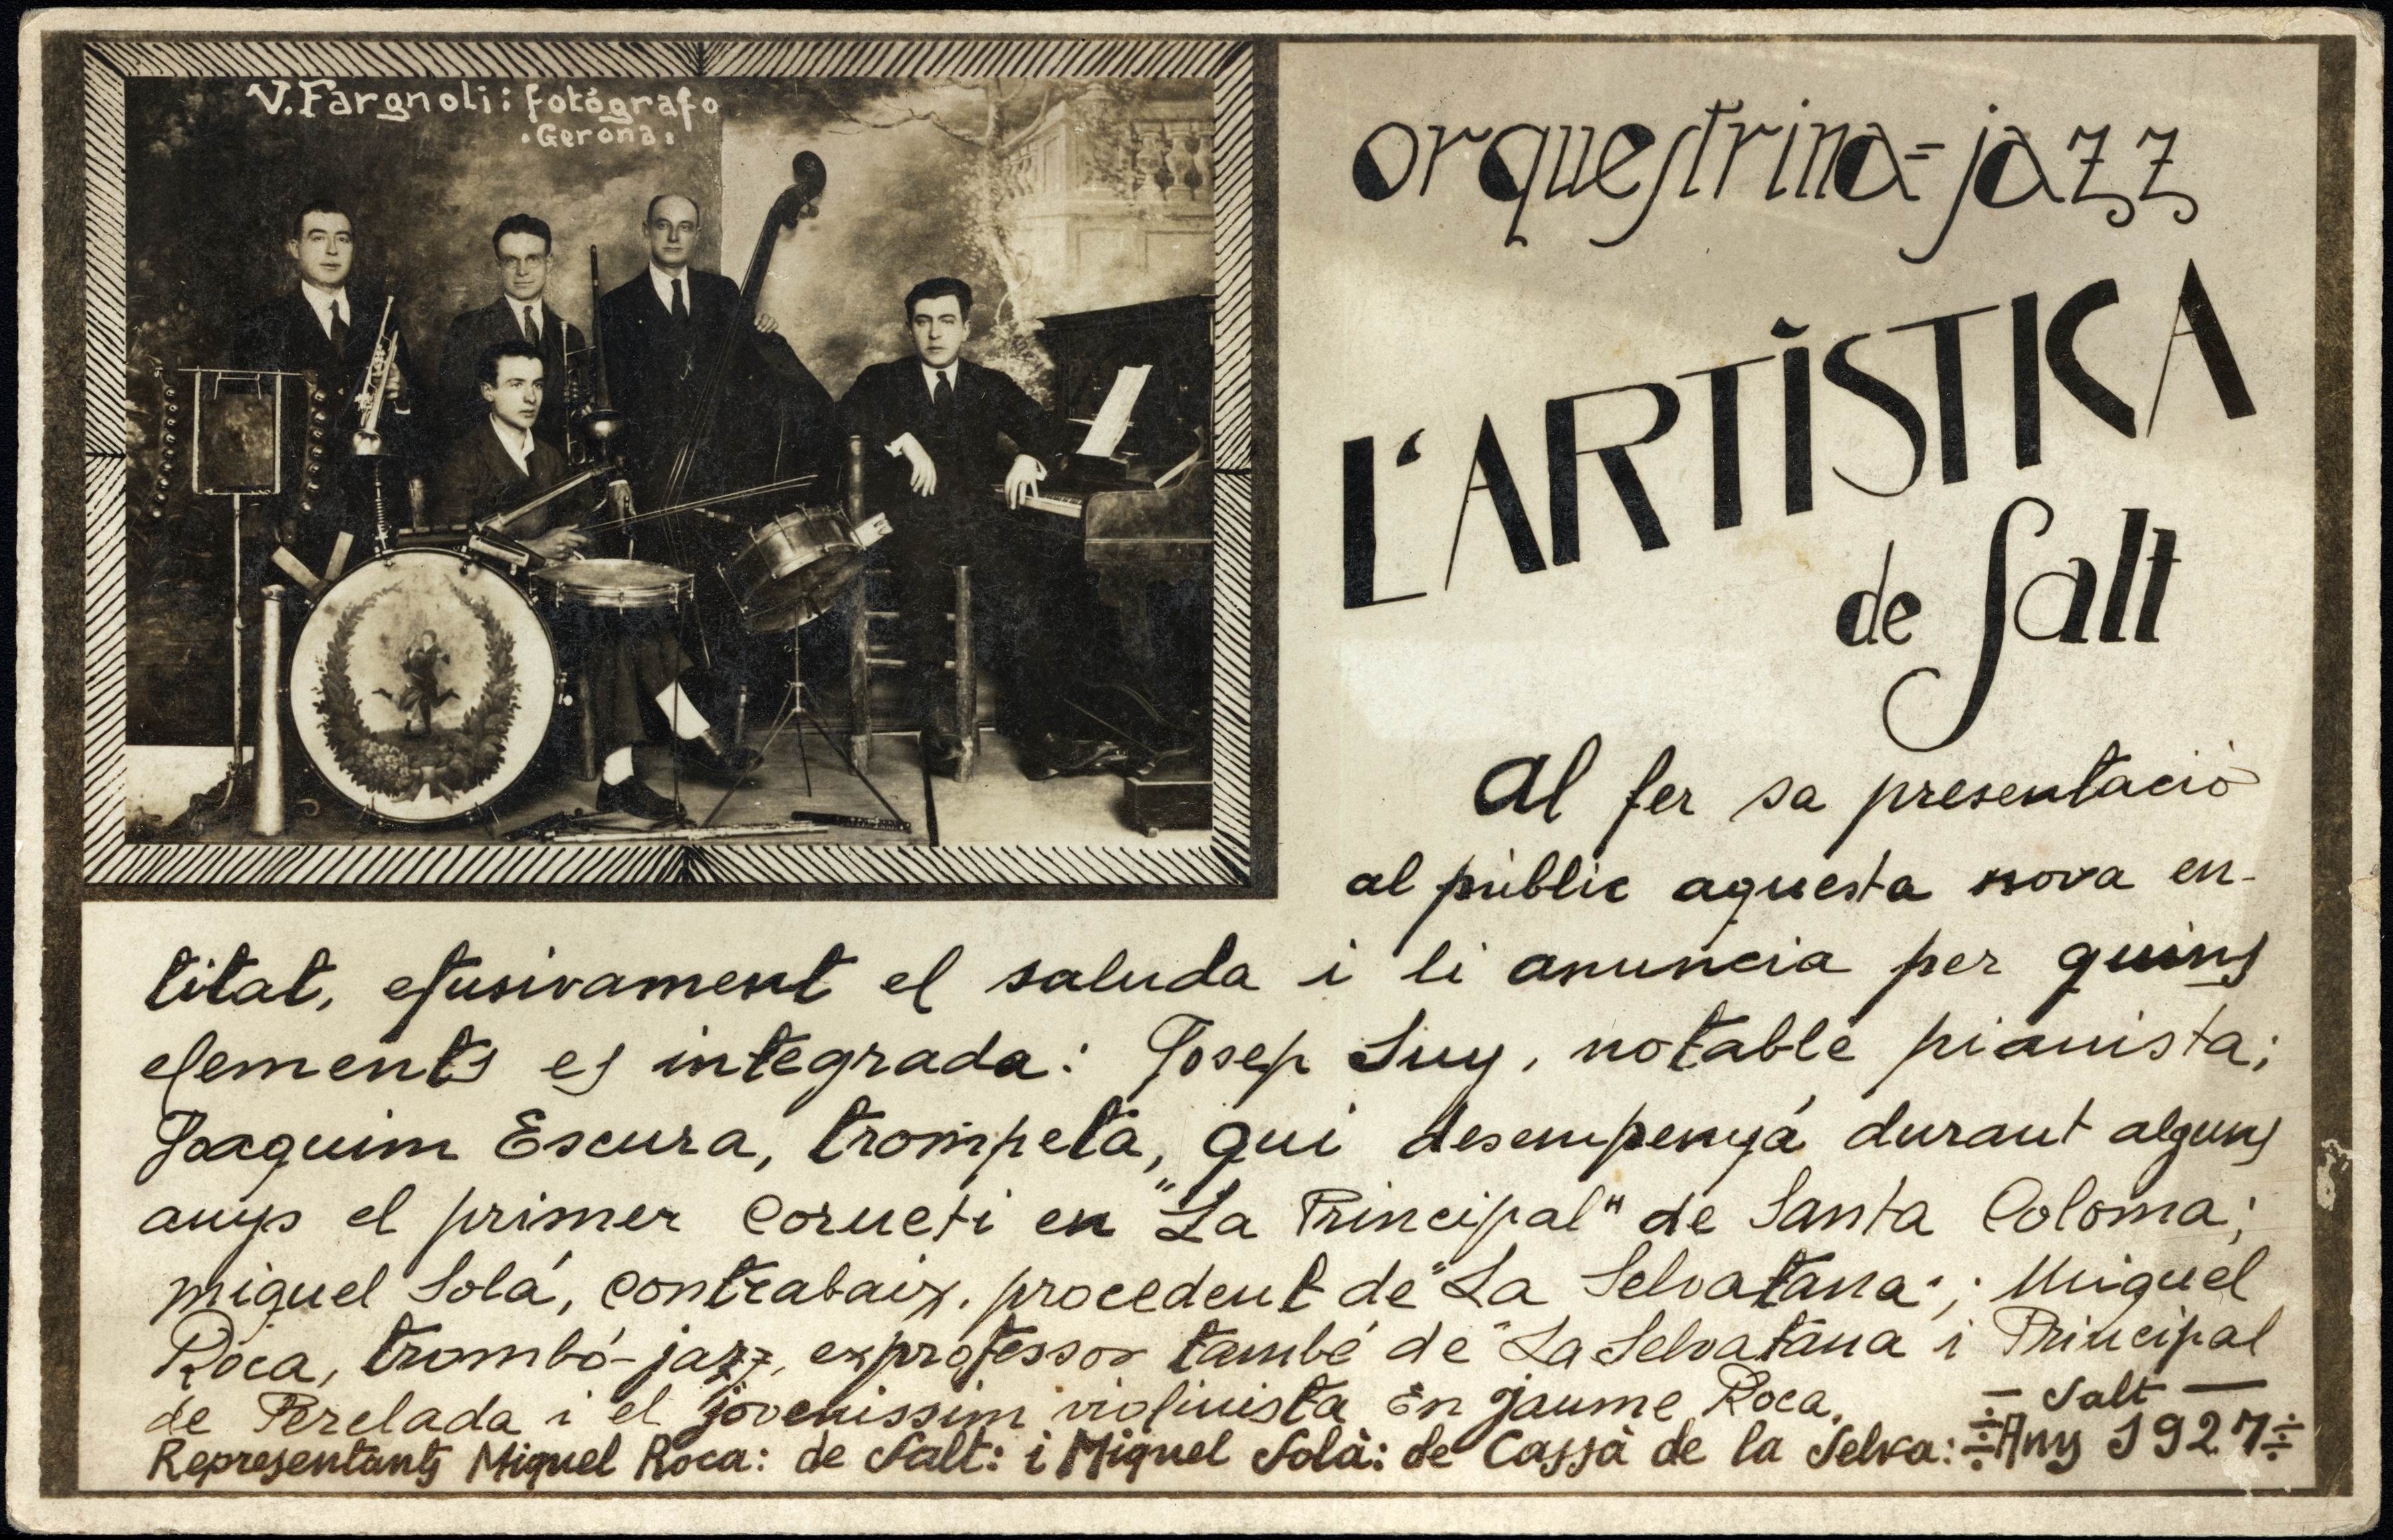 V. Fargnoli: fotógrafo
·Gerona·
orquestrina=jazz
L'ARTÍSTICA
de Salt
Al fer sa presentació
al públic aquesta nova en-
titat, efusivament el saluda i li anuncia per quins
elements es integrada: Josep Suy, notable pianista;
Joaquim Escura, trompeta, qui desempenyá durant alguns
anys el primer cornetí en "La Principal" de Santa Coloma;
Miquel Solá, contrabaix, procedent de "La Selvatana"; Miquel
Roca, trombó-jazz, exprofessor també de "La Selvatana i Principal
de Perelada i el jovenissim violinista En Jaume Roca.
— Salt —
Representants Miquel Roca: de Salt: i Miquel Solà: de Cassà de la Selva: ÷Any 1927÷